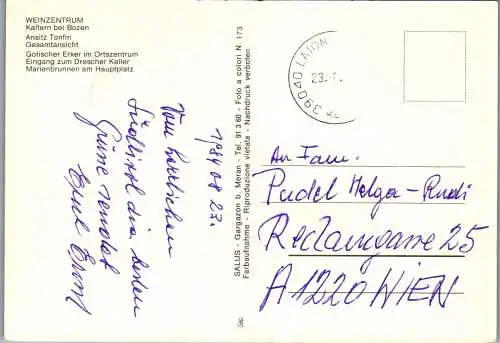 WEINZENTRUM
Kaltern bei Bozen
Ansitz Tonfin
Gesamtansicht
Gotischer Erker im Ortszentrum
Eingang zum Drescher Keller
Marienbrunnen am Hauptplatz
1984 08 23.
Vom herrlichen
Südtirol die besten
Grüße sendet
Ernst
SALUS - Gargazon b. Meran - Tel. 91 3 60 - Foto a colori N. 173
Farbaufnahme - Riproduzione vietata - Nachdruck verboten
39040 LAION
23.
An Fam.
Pudel Helga-Rudi
Reclamgasse 25
A 1220 WIEN